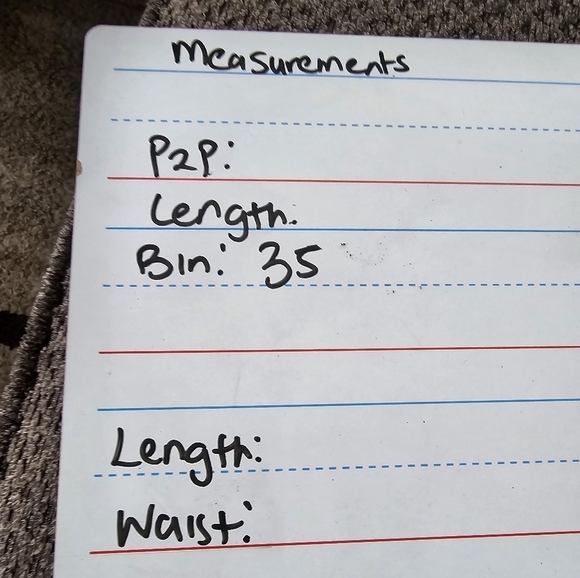 Measurements
P2P:
Length:
Bin: 35
Length:
Waist: